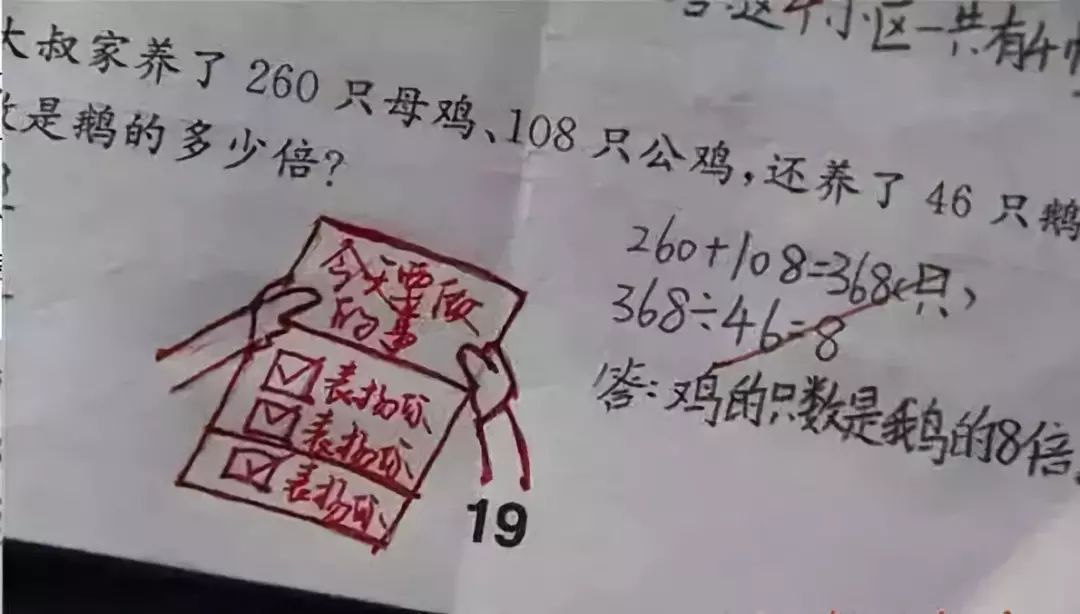 答:这个小区一共有4
大叔家养了 260 只母鸡、108 只公鸡,还养了 46 只鹅
是鹅的多少倍?
260+108=368(只)
368÷46=8
答:鸡的只数是鹅的8倍.
今天要做
的事
表扬你
表扬你
表扬你
19